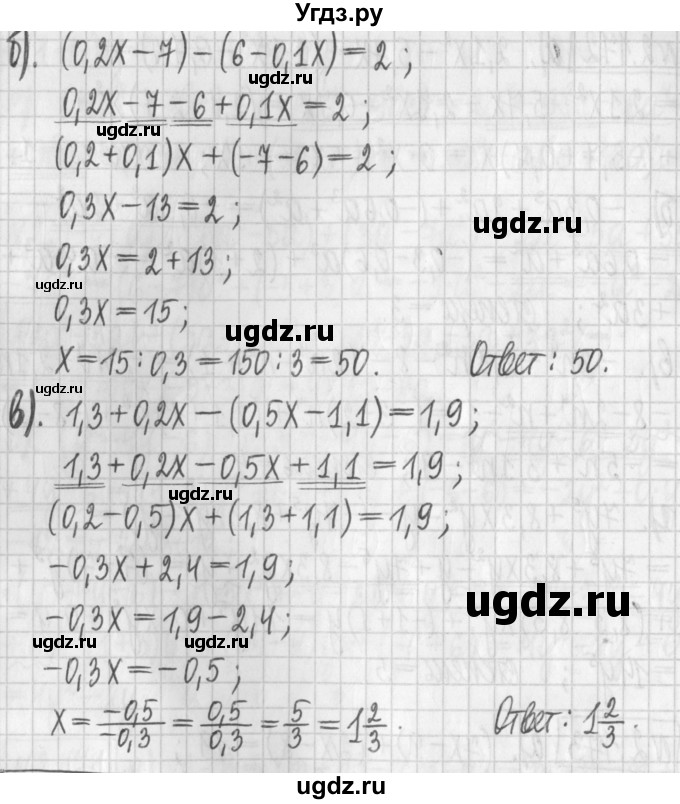 Угдз.ру
б). (0,2x−7)−(6−0,1x)=2;
ugdz.ru
0,2x−7−6+0,1x=2;
ugdz.ru
(0,2+0,1)x+(−7−6)=2;
0,3x−13=2;
ugdz.ru
0,3x=2+13;
ugdz.ru
0,3x=15;
ugdz.ru
x=15:0,3=150:3=50. Ответ: 50.
ugdz.ru
в). 1,3+0,2x−(0,5x−1,1)=1,9;
1,3+0,2x−0,5x+1,1=1,9;
ugdz.ru
(0,2−0,5)x+(1,3+1,1)=1,9;
−0,3x+2,4=1,9;
ugdz.ru
−0,3x=1,9−2,4;
ugdz.ru ugdz.ru
−0,3x=−0,5;
x=−0,5/−0,3=0,5/0,3=5/3=1 2/3. Ответ: 1 2/3.
ugdz.ru